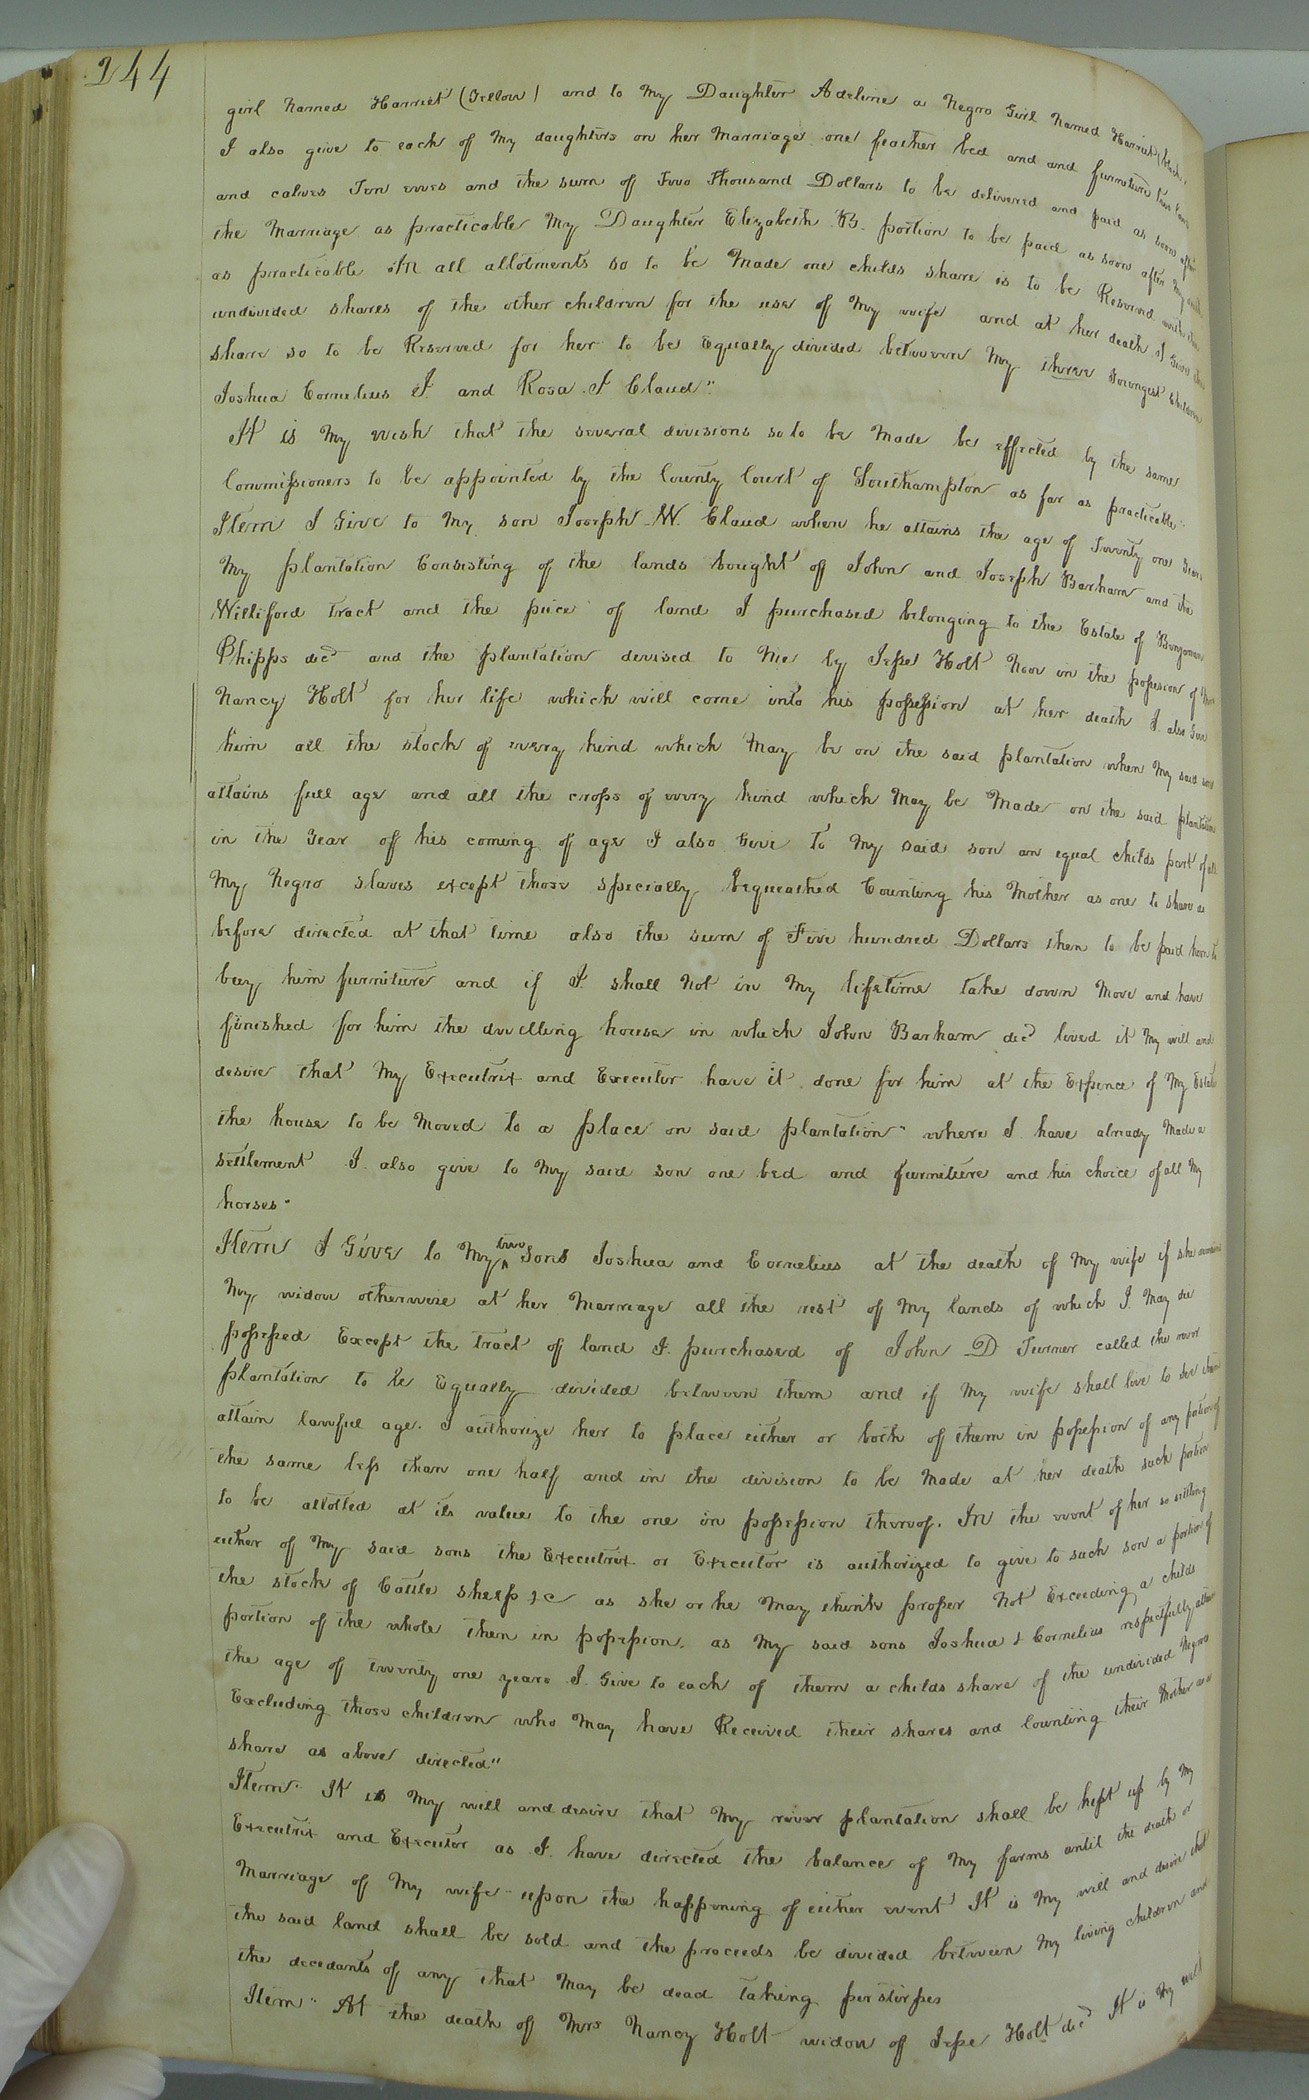 244
girl Named Harriet (Yellow) and to My Daughter Adeline a Negro Girl Named Harriet (black)
I also give to each of My daughters on her Marriage one feather bed and and furniture two cows
and calves Ten ewes and the sum of Two Thousand Dollars to be delivered and paid as soon after
the Marriage as practicable My Daughter Elizabeth B. portion to be paid as soon after My death
as practicable In all allotments so to be Made one childs share is to be Reserved with the
undivided shares of the other children for the use of My wife and at her death I Give the
share so to be Reserved for her to be Equally divided between My three Youngest Children
Joshua Cornelius J. and Rosa J Claud"
It is My wish that the several divisions so to be Made be effected by the same
Commissioners to be appointed by the County Court of Southampton as far as practicable"
Item I Give to My son Joseph W. Claud when he attains the age of Twenty one Years
My plantation Consisting of the lands bought of John and Joseph Barham and the
Williford tract and the piece of land I purchased belonging to the Estate of Benjaman
Phipps decd and the plantation devised to Me by Jesse Holt Now in the possession of Mrs
Nancy Holt for her life which will come into his possession at her death I also Give
him all the stock of every kind which May be on the said plantation when My said son
attains full age and all the crops of every kind which May be Made on the said plantation
in the Year of his coming of age I also Give to My said son an equal childs part of all
My Negro slaves except those specially bequeathed Counting his Mother as one to share as
before directed at that time also the sum of Five hundred Dollars then to be paid him to
buy him furniture and if I shall Not in My lifetime take down Move and have
finished for him the dwelling house in which John Barham decd lived it My will and
desire that My Executrix and Executor have it done for him at the Expence of My Estate
the house to be Moved to a place on said plantation" where I have already Made a
settlement I also give to My said son one bed and furniture and his choice of all My
horses"
Item I Give to My two Sons Joshua and Cornelius at the death of My wife if she remains
My widow otherwise at her Marriage all the rest of My lands of which I May die
possessed Except the tract of land I purchased of John D Turner called the river
plantation to be Equally divided between them and if My wife shall live to see them
attain lawful age. I authorize her to place either or both of them in possession of any portion of
the same less than one half and in the division to be Made at her death such portion
to be allotted at its value to the one in possession thereof. In the event of her so settling
either of My said sons the Executrix or Executor is authorized to give to such son a portion of
the stock of Cattle sheep &c as she or he May think proper Not Exceeding a childs
portion of the whole then in possession. as My said sons Joshua & Cornelius respectfully attain
the age of twenty one years I Give to each of them a childs share of the undivided Negroes
Excluding those children who May have Received their shares and Counting their Mother as a
share as above directed"
Item" It is My will and desire that My river plantation shall be kept up by My
Executrix and Executor as I have directed the balance of My farms until the death or
Marriage of My wife" upon the happening of either event It is My will and desire that
the said land shall be sold and the proceeds be divided between My living children and
the decedants of any that May be dead taking perstirpes
Item" At the death of Mrs Nancy Holt widow of Jesse Holt decd It is My will